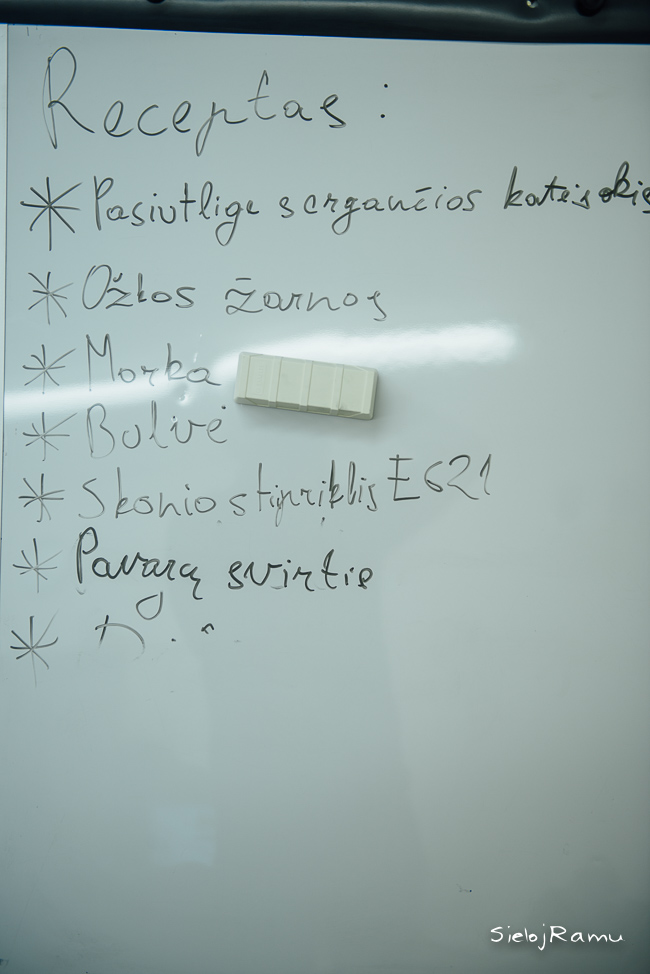 Receptas:
* Pasiutlige sergančios katės akis
* Ožkos žarnos
* Morka
* Bulvė
* Skonio stipriklis E621
* Pavarų svirtis
*
SielojRamu